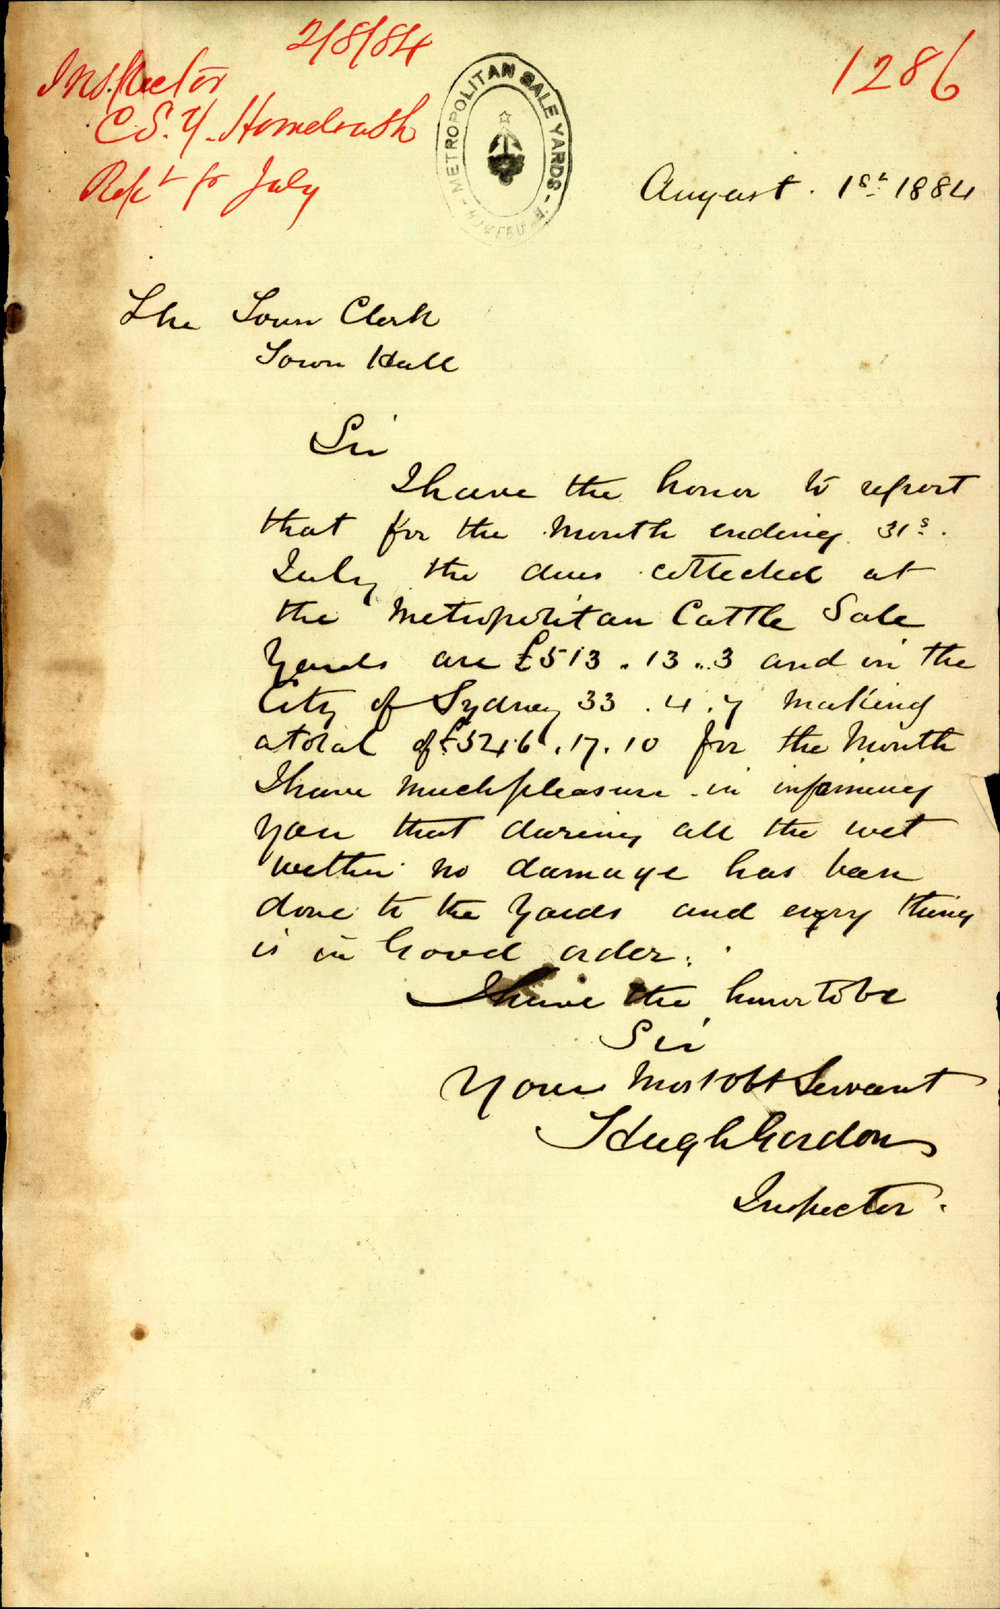 2/8/84
1286
Inspector
C.S.Y. Homebush
Rept fr July
METROPOLITAN SALE YARDS
August. 1st 1884
The Town Clerk
Town Hall
Sir
I have the honor to report
that for the Month ending 31s.
July the dues collected at
the Metropolitan Cattle Sale
Yards are £513.13.3 and in the
City of Sydney 33.4.7 Making
a total of £546.17.10 for the Month
I have much pleasure in informing
you that during all the wet
wether no damage has been
done to the Yards and every thing
is in Good order.
I have the honor to be
Sir
Your Most Obt Servant
Hugh Gordon
Inspector.